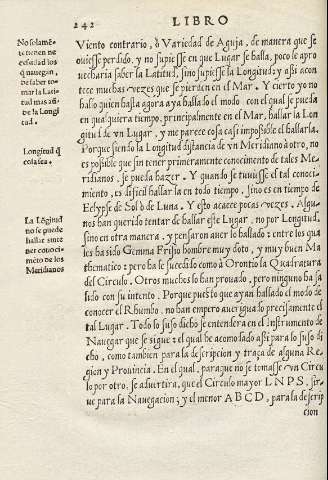 242 LIBRO
Viento contrario, ò Variedad de Aguja, de manera que se
ouiesse perdido, y no supiesse en que Lugar se balla, poco le apro
uecharia saber la Latitud, sino supiesse la Longitud; y assi acon
tece muchas vezes que se pierden en el Mar. Y cierto yo no
ballo quien basta agora aya ballado el modo con el qual se pueda
en qual quiera tiempo, principalmente en el Mar, ballar la Lon
gitud de vn Lugar, y me parece cosa casi impossible el ballarla.
Porque siendo la Longitud distancia de vn Meridiano à otro, no
es possible que sin tener primeramente conocimento de tales Me
ridianos, se pueda hazer. Y quando se tuuiesse el tal conoci
miento, es dificil ballar la en todo tiempo, sino es en tiempo de
Eclypse de Sol ò de Luna. Y esto acaece pocas vezes. Algu
nos han querido tentar de ballar este Lugar, no por Longitud,
sino en otra manera, y pensaron auer lo ballado: entre los qua
les ha sido Gemma Frisio hombre muy doto, y muy buen Ma
thematico; pero ha le sucedido como à Orontio la Quadratura
del Circulo. Otros muchos lo han prouado, pero ninguno ha sa
lido con su intento. Porque puesto que ayan ballado el modo de
conocer el Rhumbo, no han empero aueriguado precisamente el
tal Lugar. Todo lo suso dicho se entendera en el Instrumento de
Nauegar que se sigue; el qual he acomolado assi para lo suso di
cho, como tambien para la descripcion y traça de alguna Re
gion y Prouincia. En el qual, paraque no se tomasse vn Circu
lo por otro, se aduertira, que el Circulo mayor LNPS, sir
ue para la Nauegacion; y el menor ABCD, para la descrip
cion
No solamẽ
te tienen ne
cessidad los
q̃ nauegan,
de saber to-
mar la Lati-
tud mas aũ
de la Longi
tud.
Longitud q̃
cosa sea.
La Lõgitud
no se puede
hallar sin te
ner conoci-
miẽto de los
Meridianos